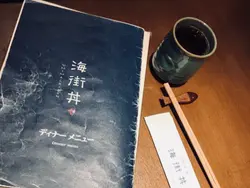 海街丼
ディナー メニュー
DINNER MENU
海街丼